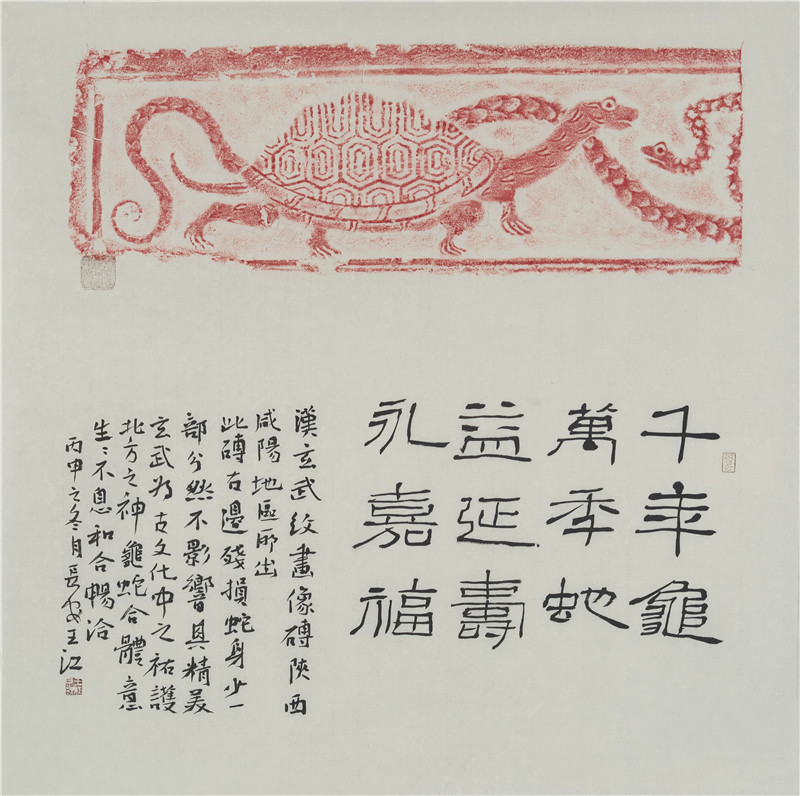 千年龜
萬季虵
益延壽
永嘉福
漢玄武纹畫像磚陝西
咸陽地區所出
此磚右邊殘損蛇身少一
部分然不影響其精美
玄武为古文化中之祐護
北方之神龜蛇合體意
生〻不息和合暢洽
丙申之冬月長安王江